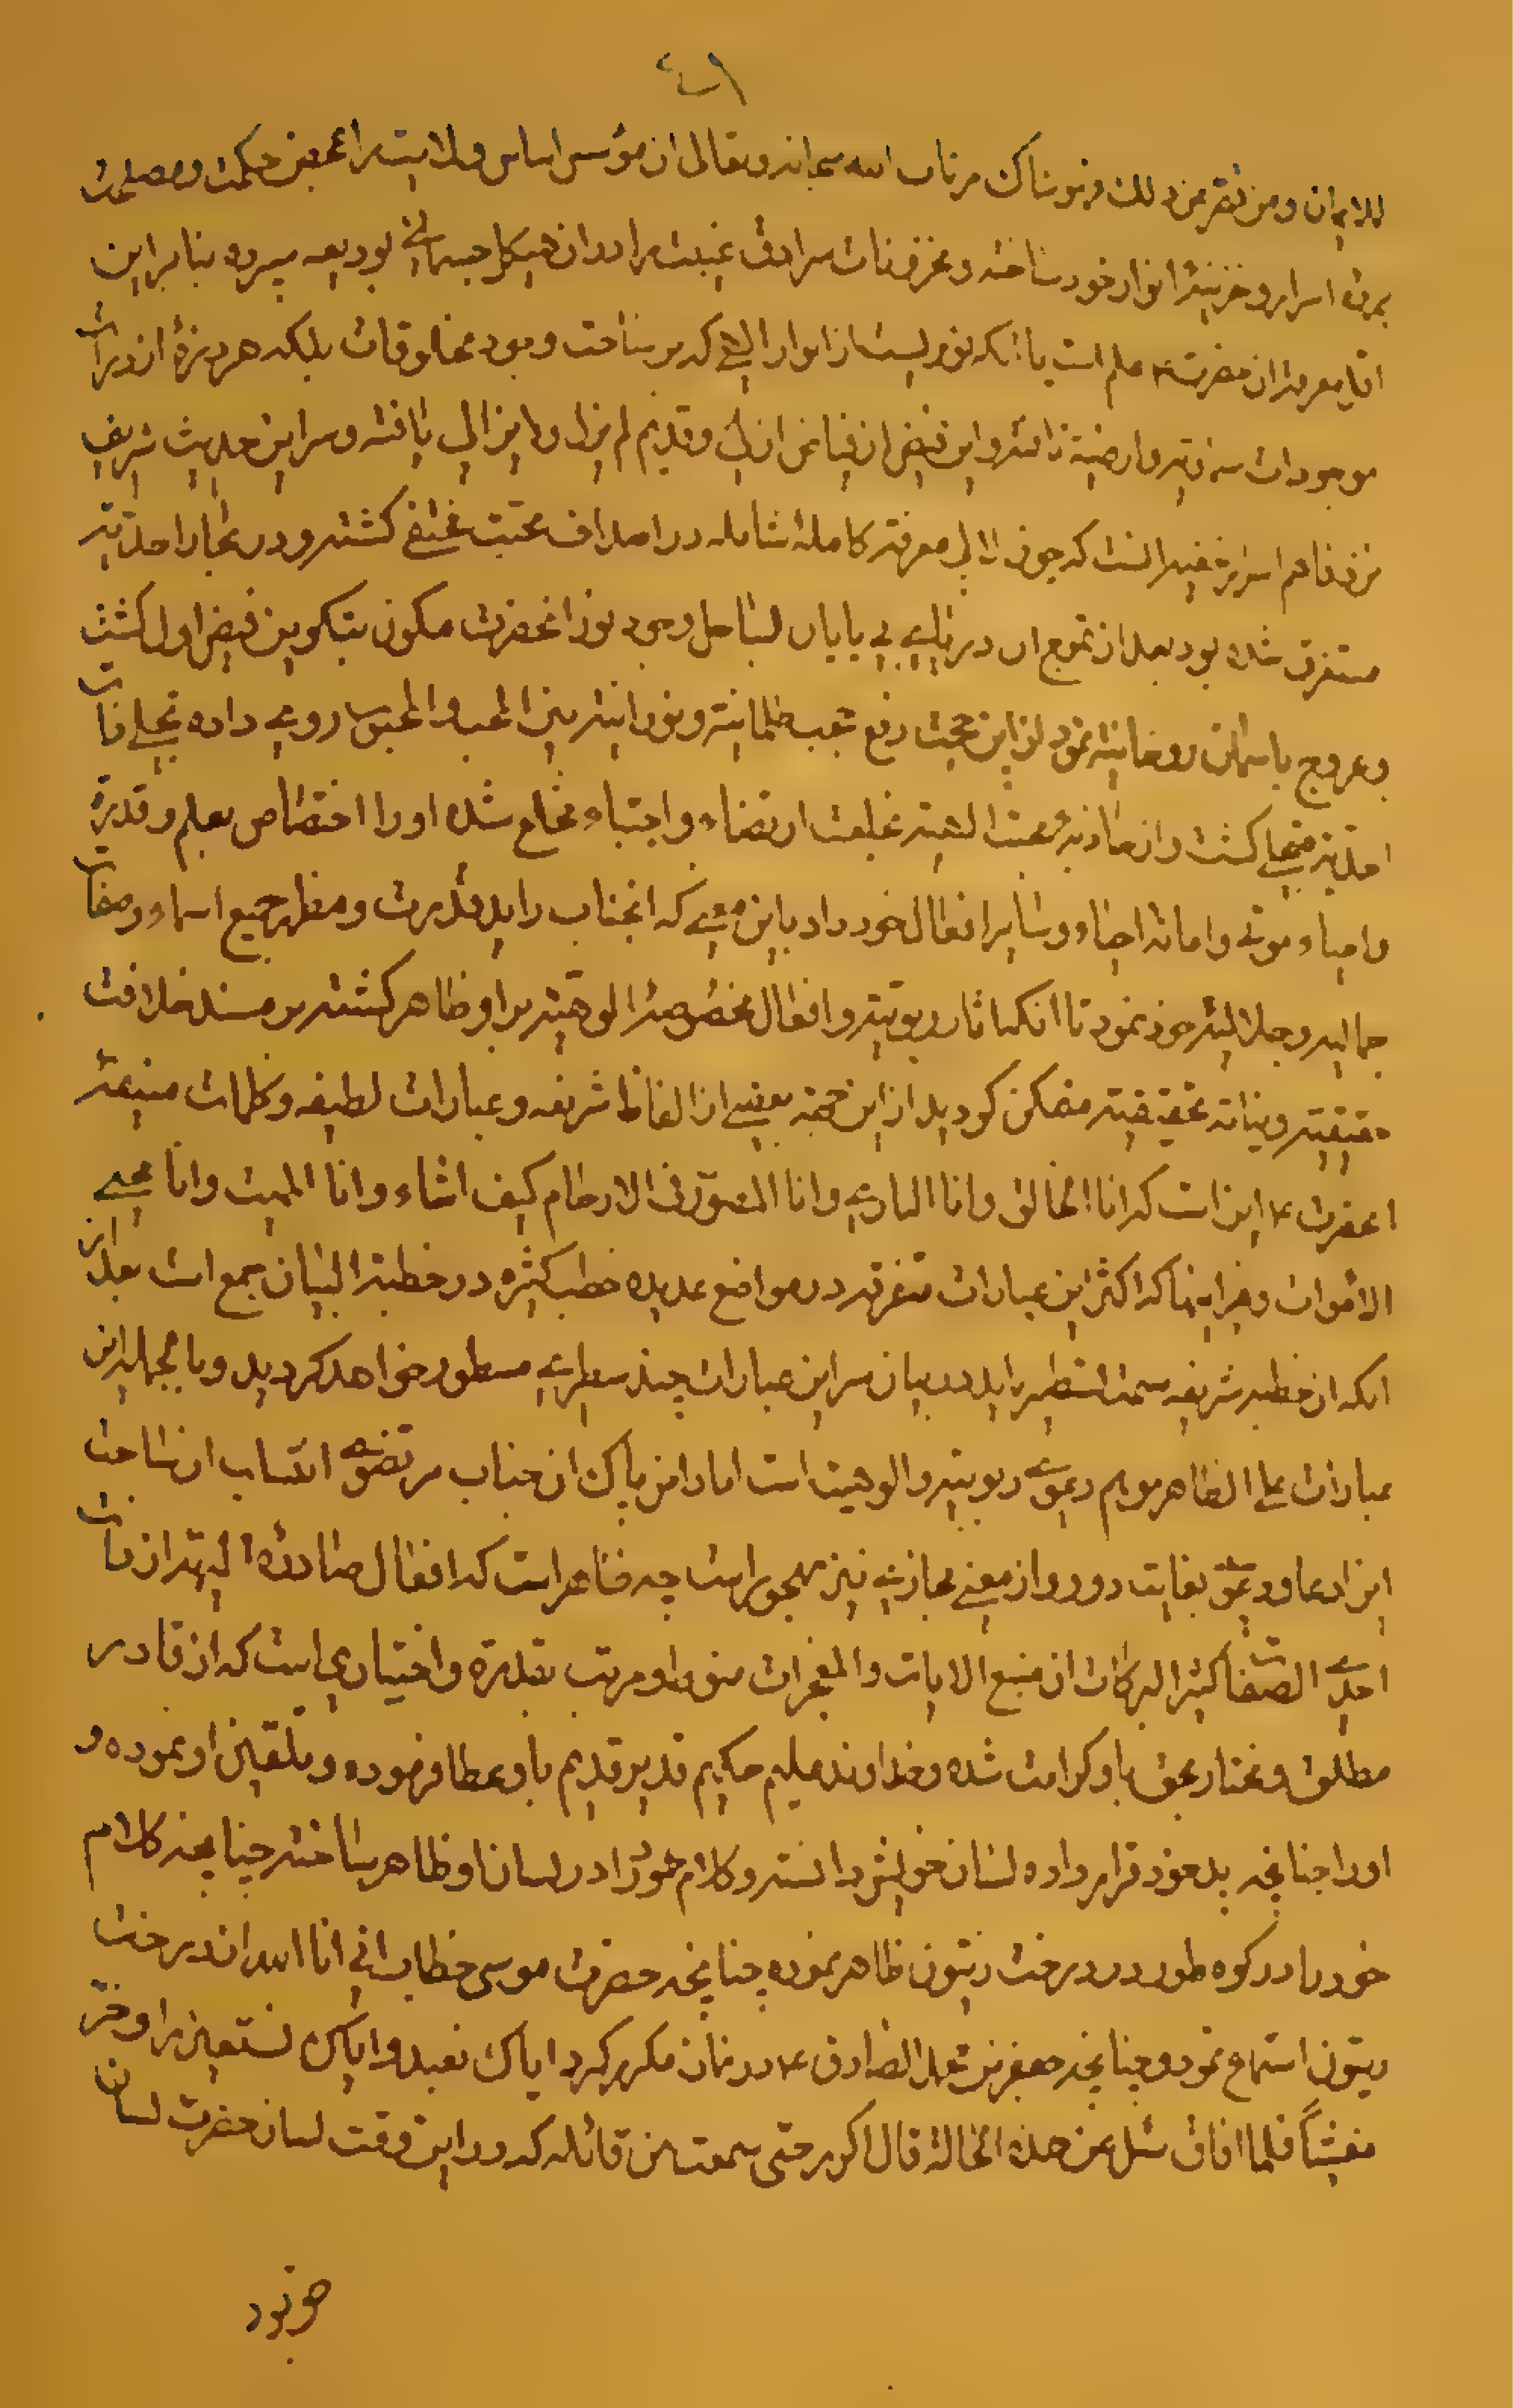 للایمان ومن تقر عن ذلک فهو شاک مرتاب الله سبحانه وتعالی ان مؤسس اساس ولایت را بمحض حکمت ومصلحت
اسرار وخزینه انوار خود ساخته ومخزونات سرادق غیبت را در ان هیکل جسمانی بودیعه سپرده بنابراین
ان حضرت ۴ علم است یا انکه نوریست از انوار الهی که بر ساحت وجود مخلوقات بلکه هر ذره از ذرات
موجودات سماویه وارضیة تافته واین فیض از فیاض ازلی وقدیم لم یزل ولایزالی یافته وسر این حدیث شریف
اسرار خفیه انست که چون لالی معرفة کامله شامله در اصداف محبت مختفی کشته ودر بحار احدیته
مستغرق شده بود بعد از تموج ان دریای بی پایان لساحل وجود نور انحضرت مکون بتکوین فیض اول کشت
وعروج باسمان روحانیته نمود از این جهت رفع حجب ظلمانیته ونورانیته بین المحب والمحبوب روی داده تجلی ذات
احدیته متجلی کشت واز محبت الهیته بخلعت ارتضاء واجتباء مخلع شده او را اختصاص بعلم وقدرة
واحیاء موتی واماته احیاء وسایر افعال خود داد باین معنی که انجناب را ید قدرت ومظهر جمیع اسماء وصفات
جمالیه وجلالیته خود نمود تا انکه اثار ربوبیته وافعال مخصوصه الوهیته بر او ظاهر کشته بر مسند خلافت
حقیقیته ونیابة تحقیقیته متمکن کردید از این جهة بعضی از الفاظ شریفه وعبارات لطیفه وکلمات منیعه
انحضرت ۴ این است که انا الخالق وانا الباری وانا المصور فی الارحام کیف اشاء وانا الممیت وانا محیی
الاموات وغیر اینها که اکثر این عبارات متفرقه در مواضع عدیده خطب کثیره در خطبة البیان جمع است بعد از
انکه ان خطبه شریفه سمت تسطیر یابد در بیان سر این عبارات چند سطری مسطور خواهد کردید وبالجمله این
عبارات علی الظاهر موهم دعوی ربوبیته والوهیت است اما دامن پاک ان جناب مرتضوی انتساب از ساحت
این ادعا ودعوی بغایت دور واز معنی مجازی نیز مهجور است چه ظاهر است که افعال صادره الهیه از ذات
احدی الصفات کثیر البرکات ان منبع الایات والمعجزات منوط ومرتب بقدرة واختیاری است که از قادر
مطلق ومختار بحق باو کرامت شده وخداوند علیم حکیم قدیر قدیم باو عطا فرموده وتلقین او نموده و
اورا چنانچه ید خود قرار داده لسان خویش دانسته وکلام خود را در لسان او ظاهر ساخته چنانچه کلام
خود را در کوه طور در درخت زیتون ظاهر نموده چنانچه حضرت موسی خطاب انی انا الله از درخت
زیتون استماع نمود وچنانچه جعفر بن محمد الصادق ۴ در نماز مکرر کرد ایاک نعبد وایاک نستعین را وخر
مغشیاً فلما افاق سئل عن هذه الحالة قال اکرر حتی سمعت من قائله که در این وقت لسان حضرت لسان
خود